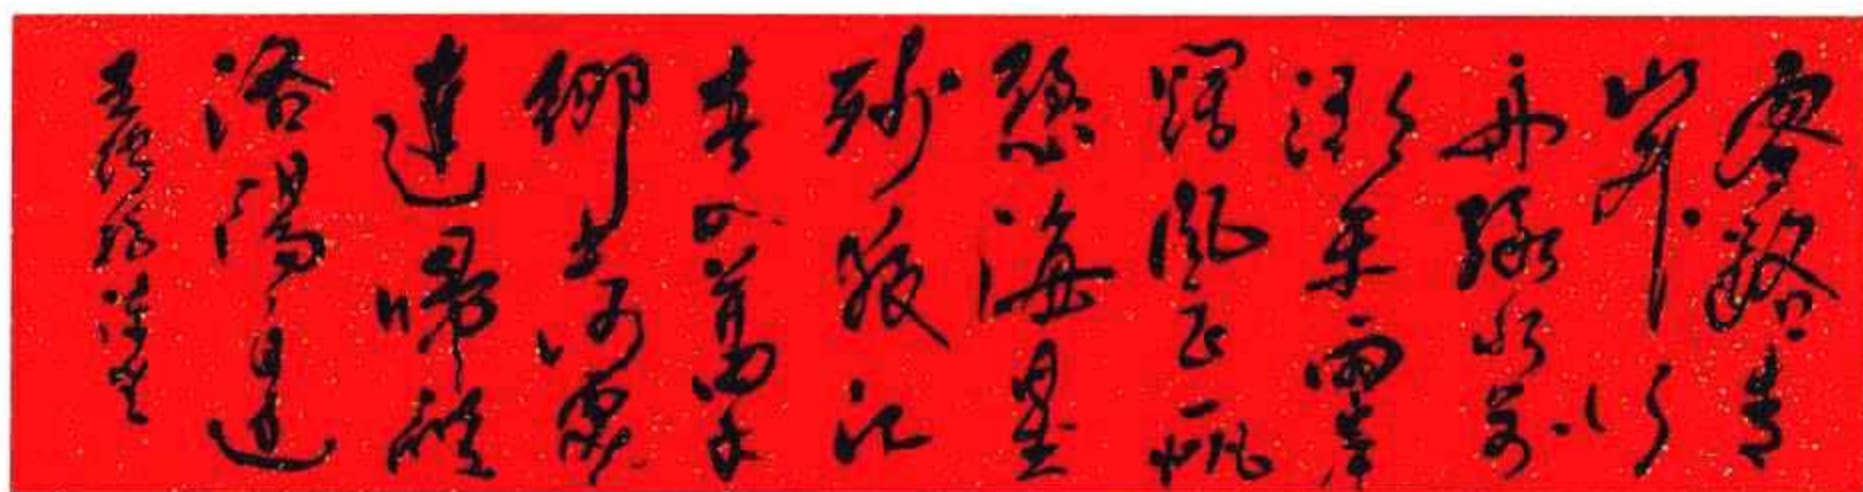 客路青
山外行
舟綠水前
潮平兩岸
闊風正一帆
懸海日生
殘夜江
春入舊年
鄉書何處
達歸雁
洛陽邊
王灣詩